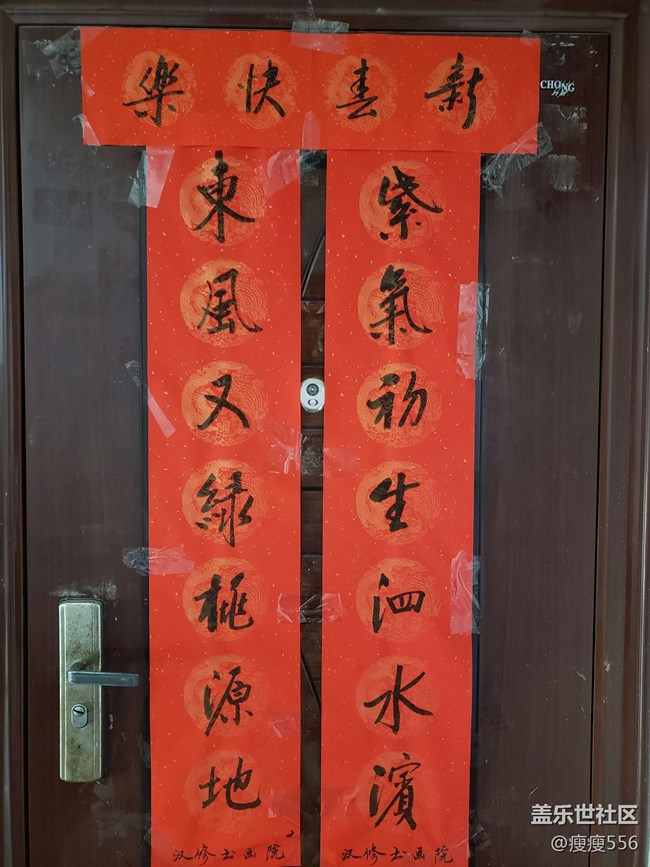 新春快樂
紫氣初生泗水濱
汉修书画院
東風又緑桃源地
汉修书画院
CHONG
盖乐世社区
@瘦瘦556